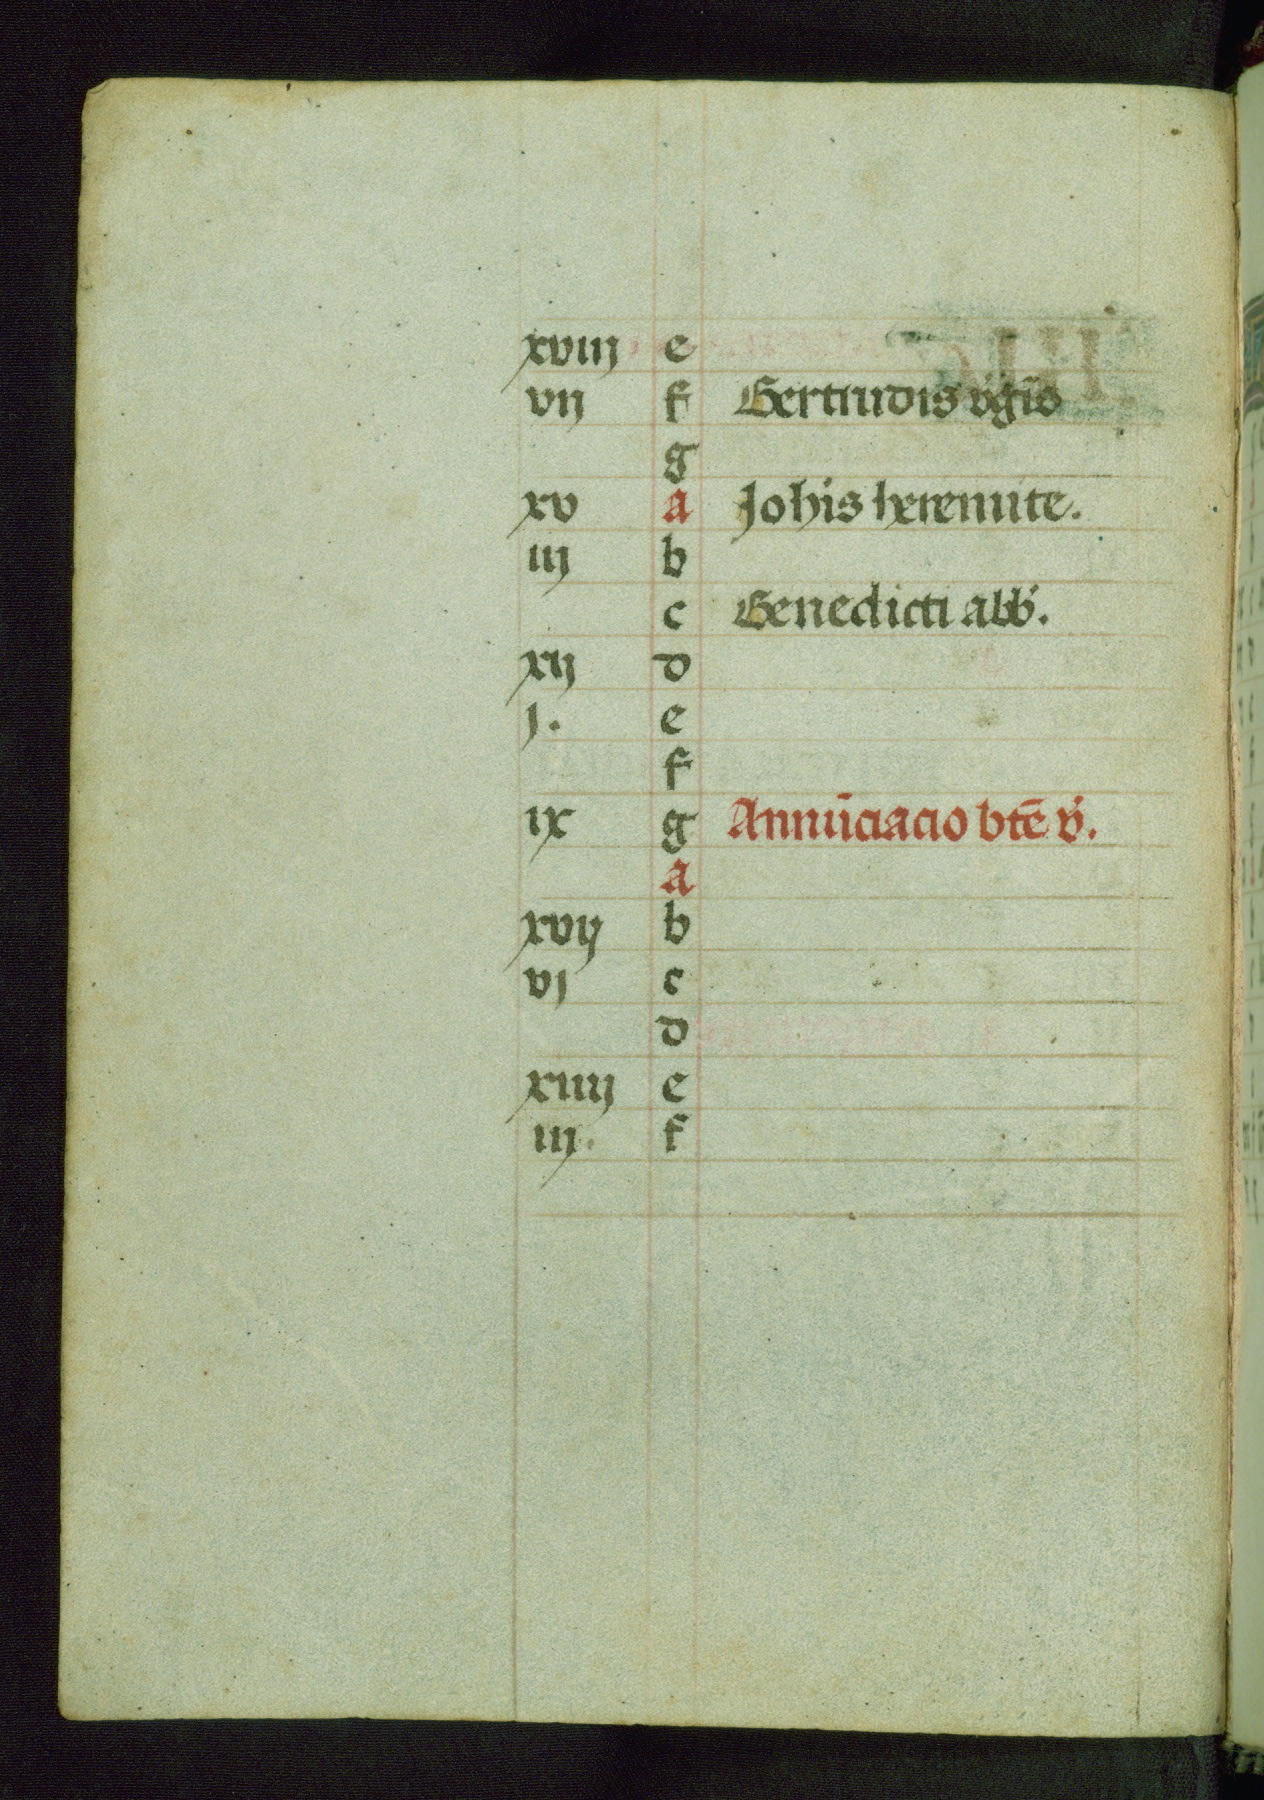 xviij e
vij f Gertrudis v̾gīs
g
xv a Joh̾is heremite.
iij b
c Benedicti abb̾.
xij d
j. e
f
ix g Annūciacio btē v̾.
a
xvij b
vj c
d
xiiij e
iij. f